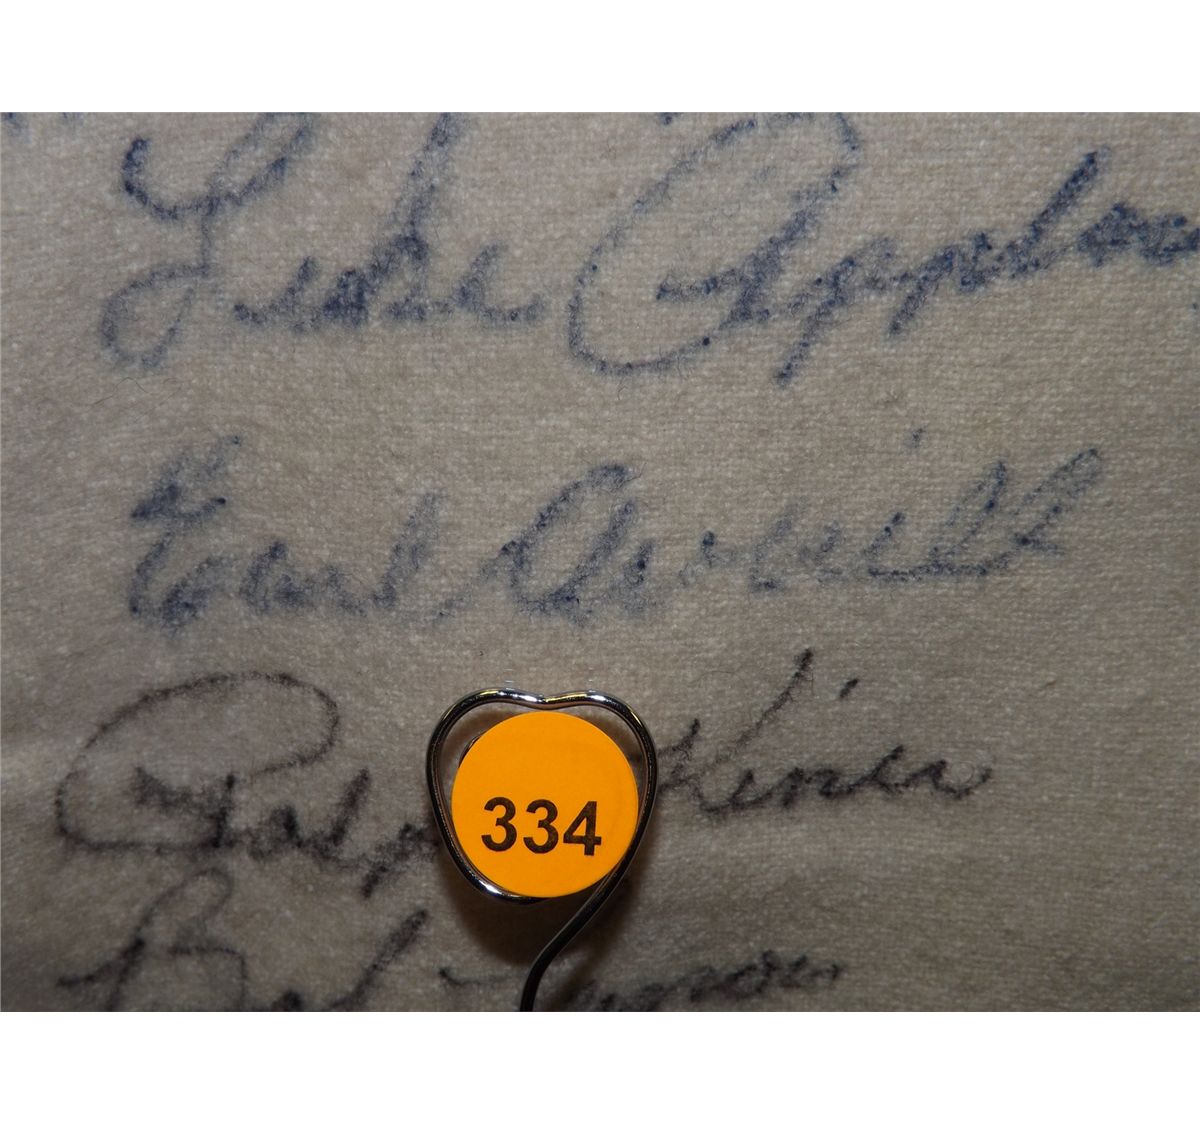 Luke Applin
Earl Averill
Ralph Kiner
334
Bob